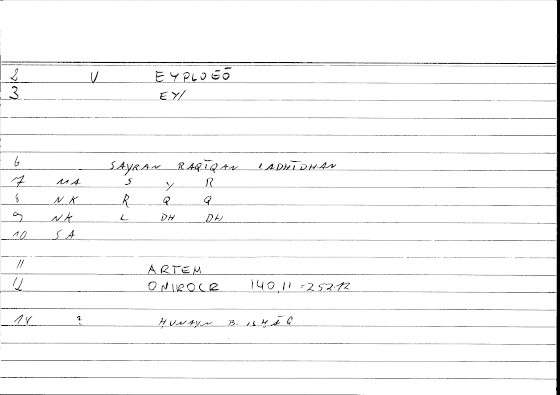 2 V EYPLOEŌ
3 EY/
6 SAYRAN RAQĪQAN LADHĪDHAN
7 MA S Y R
8 NK R Q Q
9 NK L DH DH
10 SA
11 ARTEM
12 ONIROCR 140,11 = 252,12
14 ? HUNAYN B. ISHĀQ